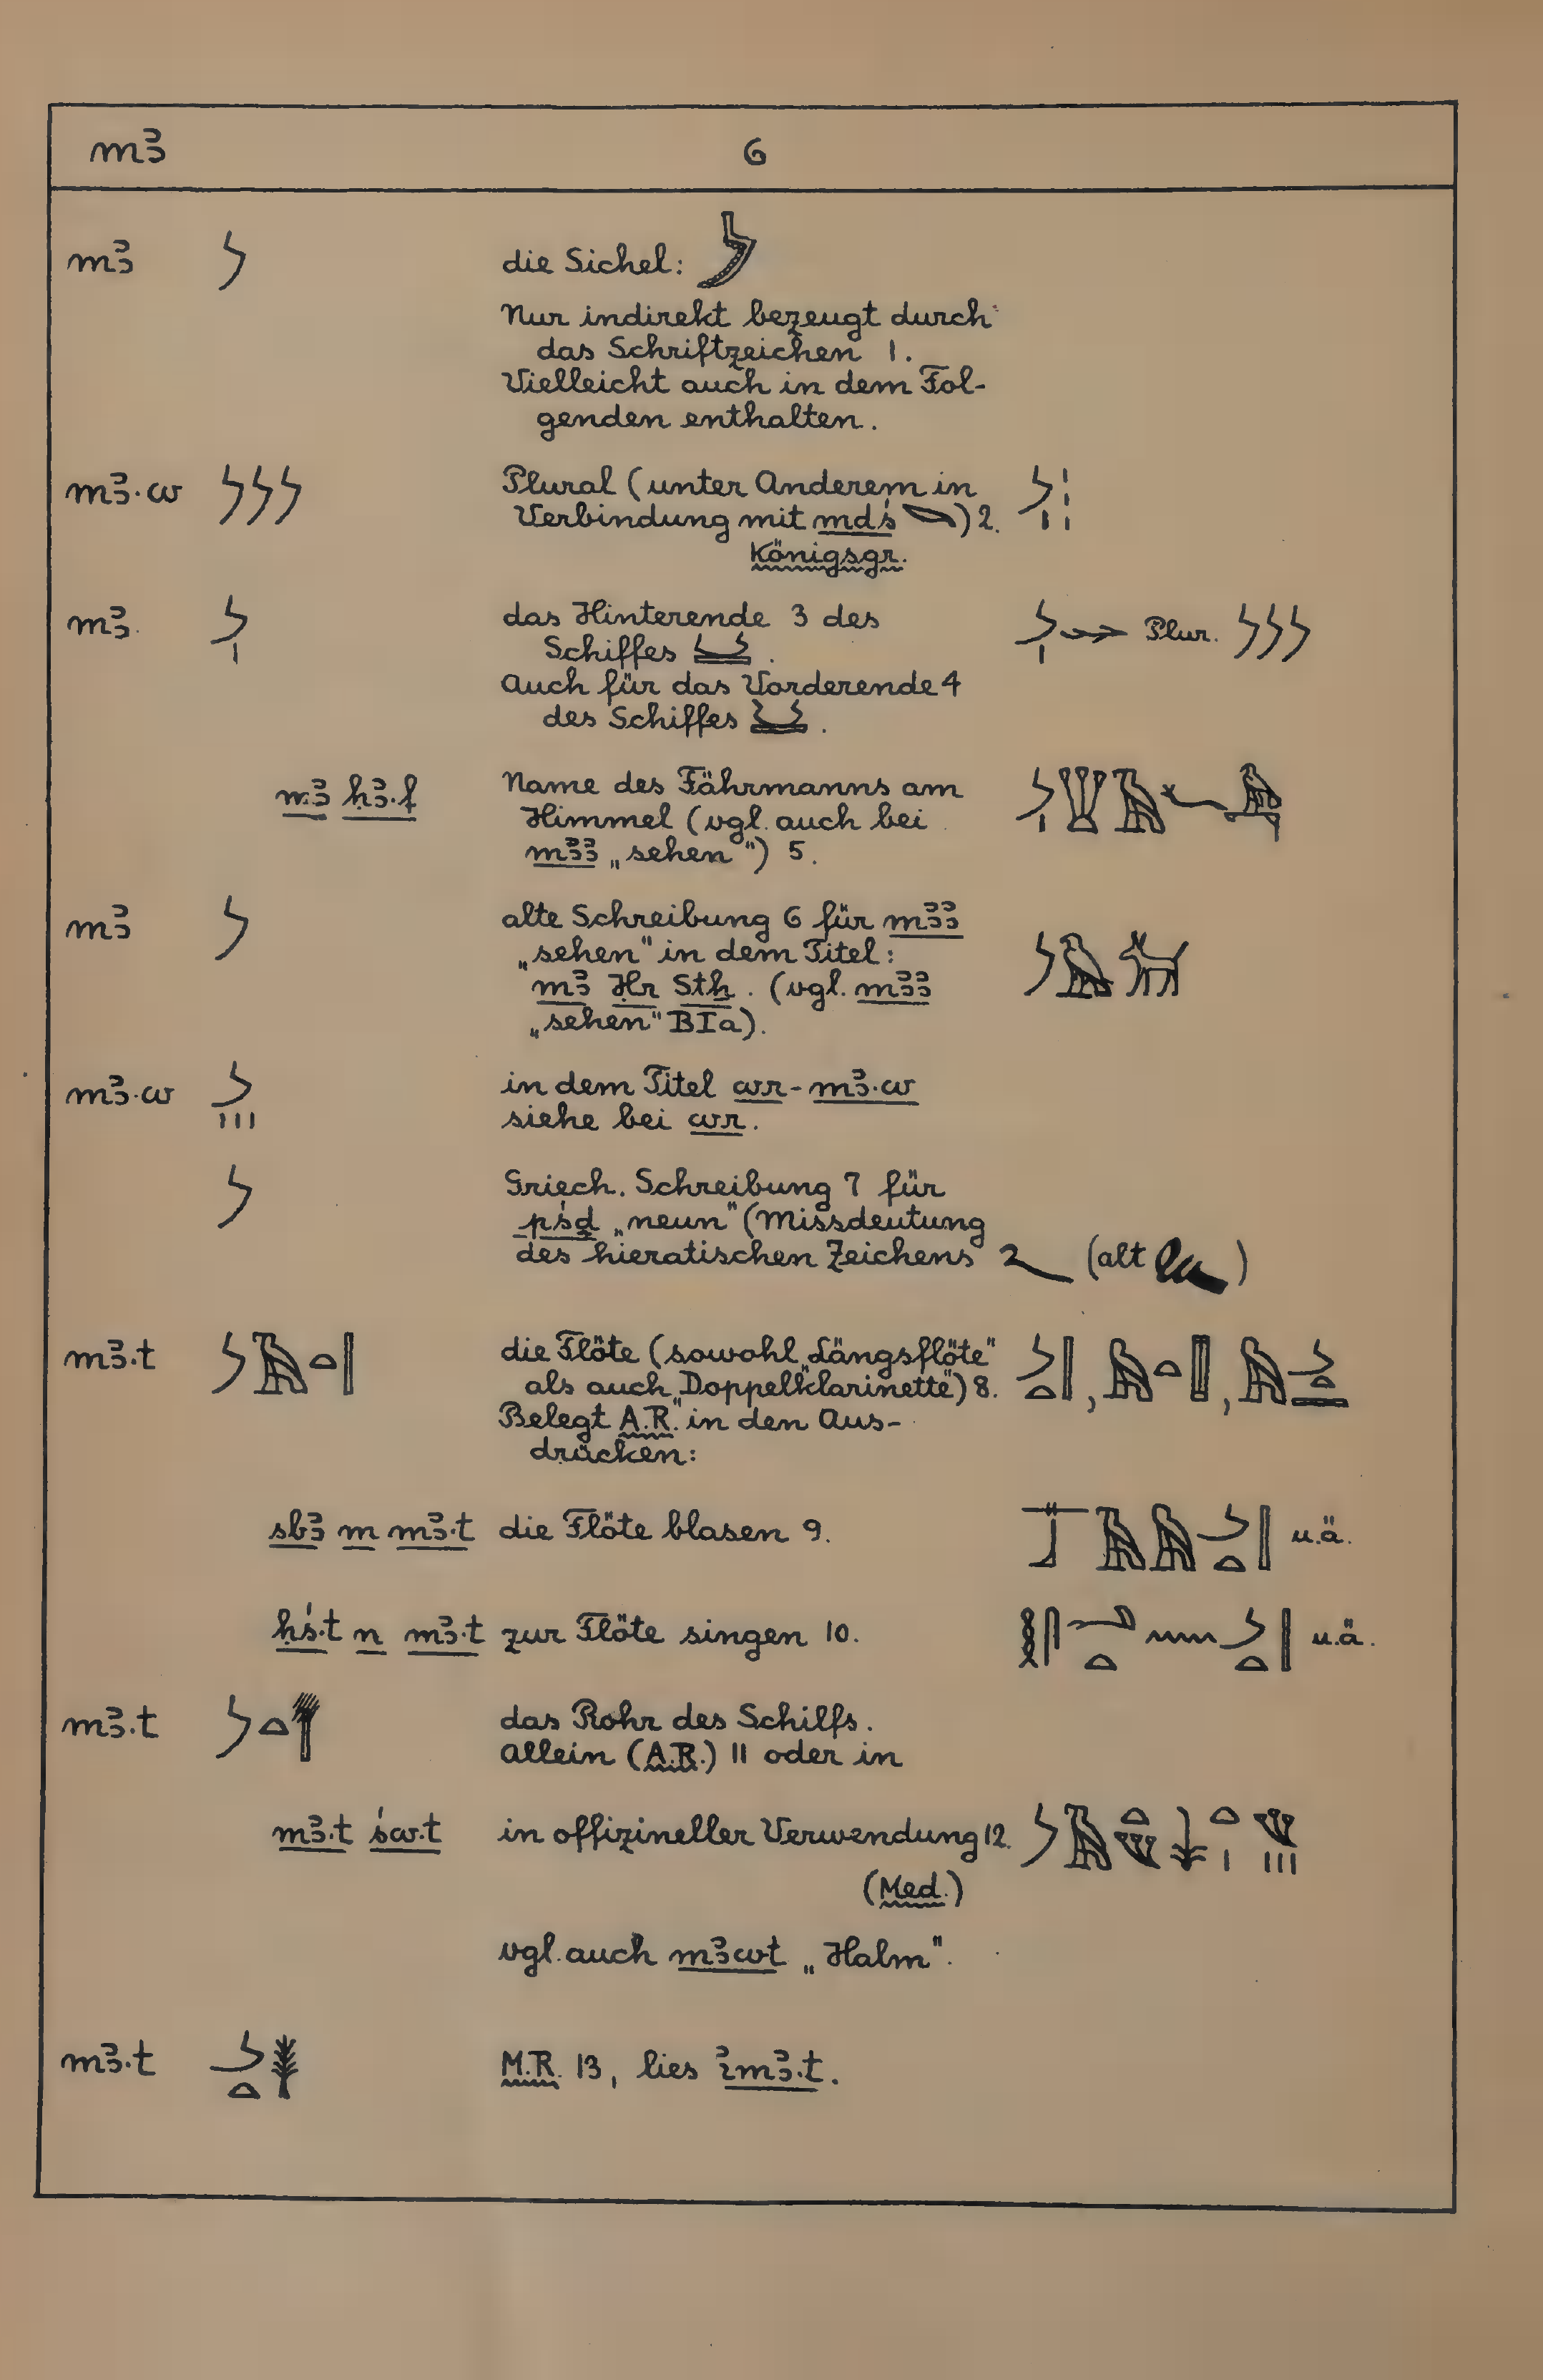 mꜣ 6
mꜣ 𓌳 die Sichel:
Nur indirekt bezeugt durch
das Schriftzeichen 1.
Vielleicht auch in dem Fol-
genden enthalten.
mꜣ·w 𓌳𓌳𓌳 Plural (unter Anderem in
Verbindung mit mdś) 2.
Königsgr.
mꜣ das Hinterende 3 des Plur. 𓌳𓌳𓌳
Schiffes .
Auch für das Vorderende 4
des Schiffes .
mꜣ ḥꜣ·f Name des Fährmanns am
Himmel (vgl. auch bei
mꜣꜣ „sehen“) 5.
mꜣ 𓌳 alte Schreibung 6 für mꜣꜣ
„sehen“ in dem Titel:
mꜣ Ḥr Stẖ. (vgl. mꜣꜣ
„sehen“ BIa).
mꜣ·w in dem Titel wr-mꜣ·w
siehe bei wr.
𓌳 Griech. Schreibung 7 für
pśḏ „neun“ (Missdeutung
des hieratischen Zeichens (alt )
mꜣ·t die Flöte (sowohl „Längsflöte“
als auch „Doppelklarinette“) 8.
Belegt A.R. in den Aus-
drücken:
sbꜣ m mꜣ·t die Flöte blasen 9. u.ä.
ḥś·t n mꜣ·t zur Flöte singen 10. u.ä.
mꜣ·t das Rohr des Schilfs.
Allein (A.R.) 11 oder in
mꜣ·t św·t in offizineller Verwendung 12.
(Med.)
vgl. auch mꜣwt „Halm“.
mꜣ·t M.R. 13, lies ꞽmꜣ·t.